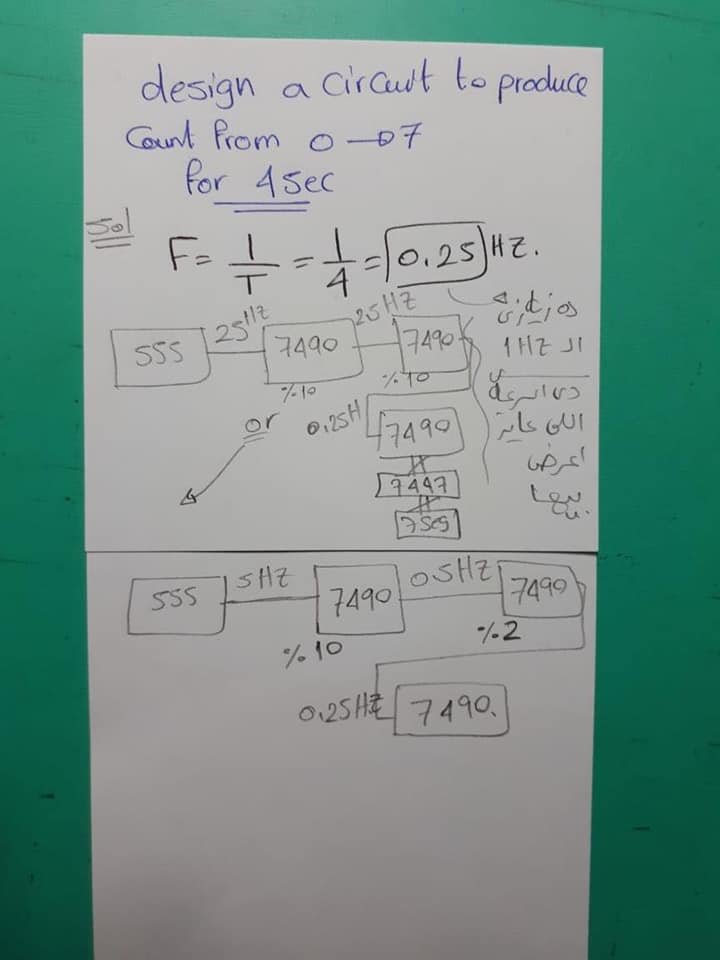 design a circuit to produce
Count from 0 → 7
for 4 Sec
Sol
F = 1/T = 1/4 = 0.25 HZ.
555 25HZ 7490 25HZ 7490
%10 %10
or 0.25H 7490
7447
7seg
زي
ال 1HZ
دي السرعة
اللي عايز
اعرض
بيها
555 5HZ 7490 05HZ 7490
%10 %2
0.25HZ 7490.